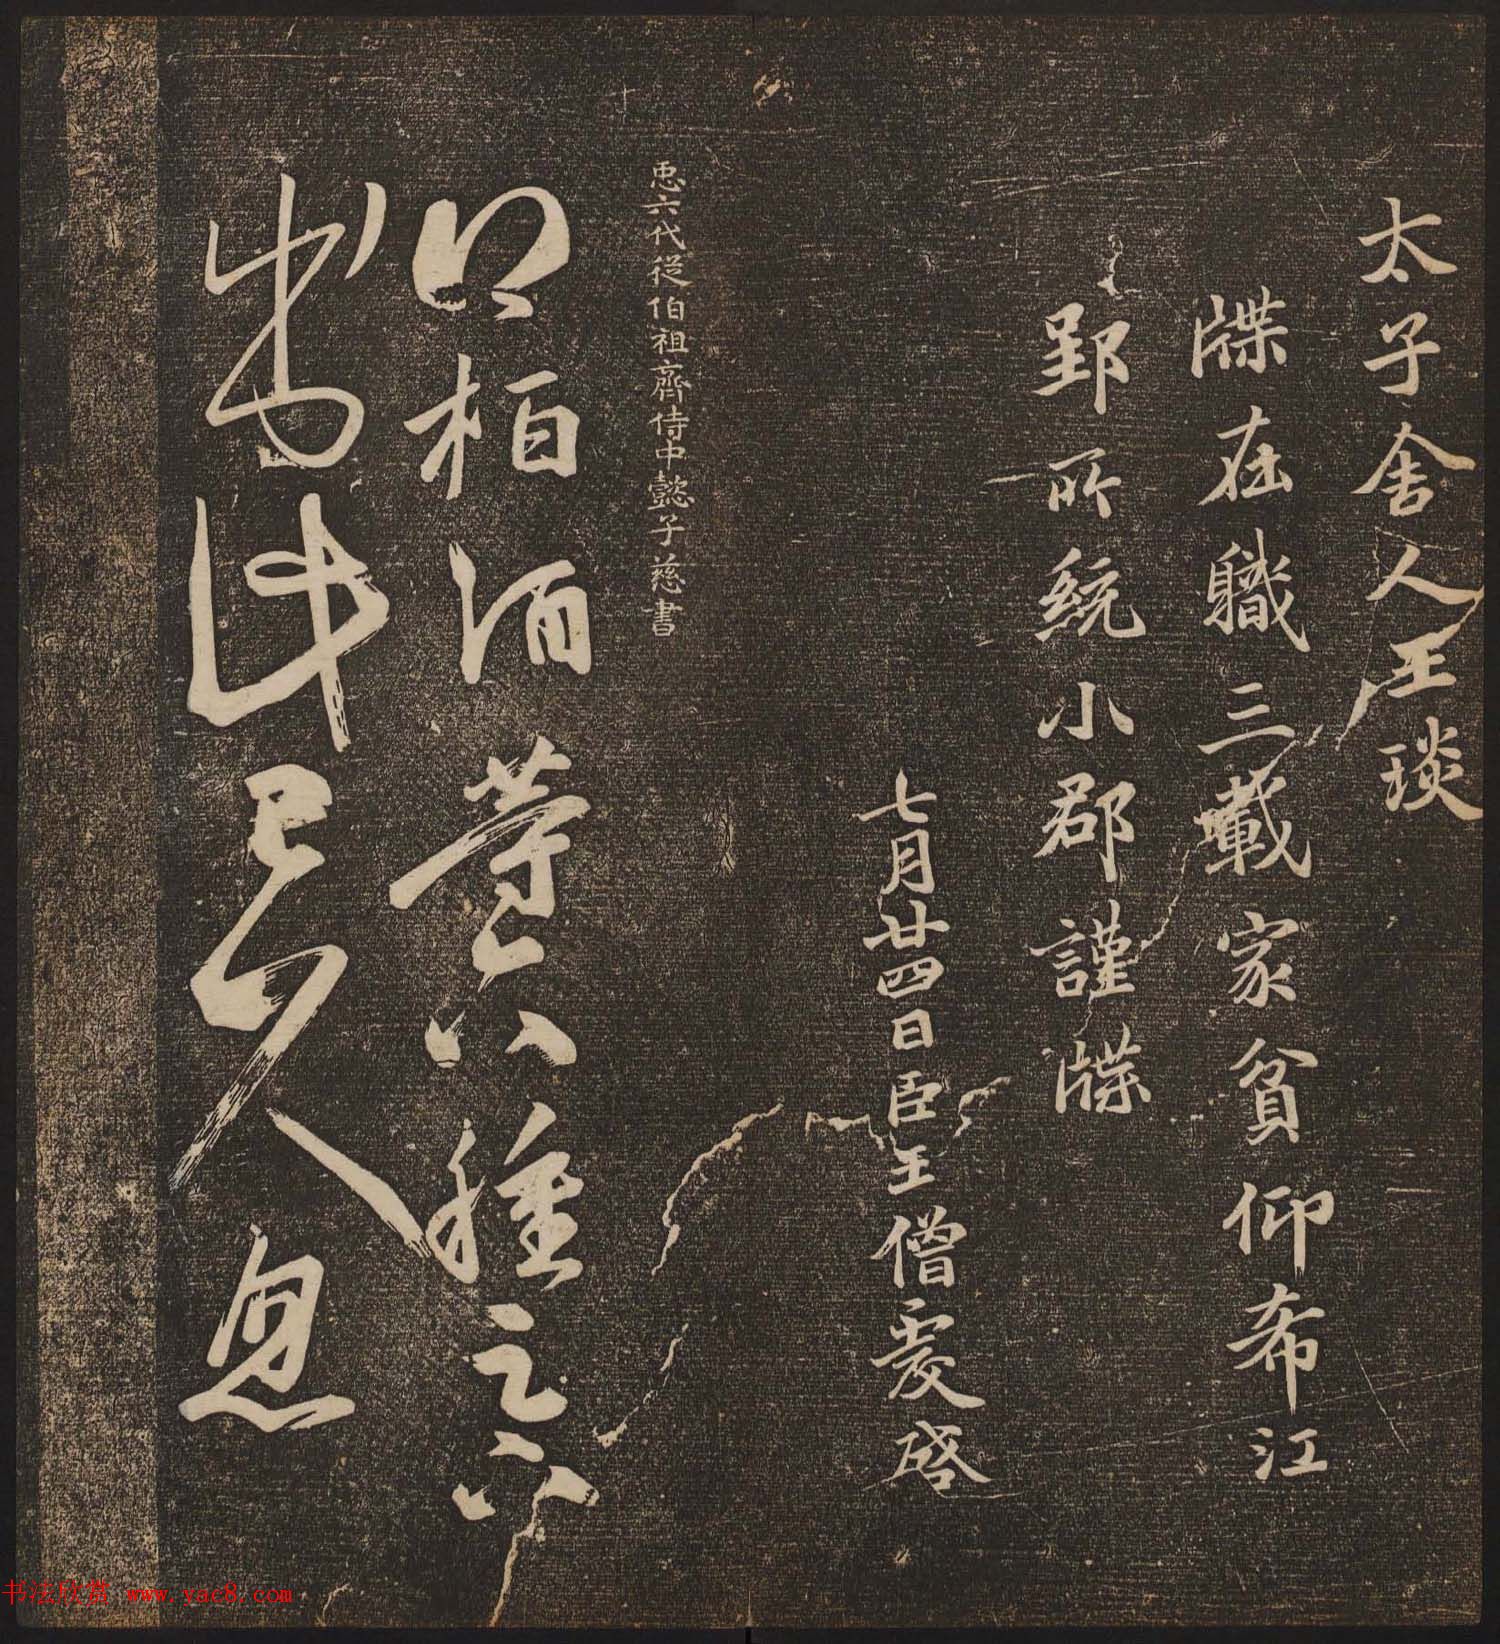 太子舍人王琰
牒在職三載家貧仰希江
郢所統小郡謹牒
七月廿四日臣王僧虔啓
六代從伯祖齊侍中懿子慈書
栢酒等八種之
書法欣赏 www.yac8.com